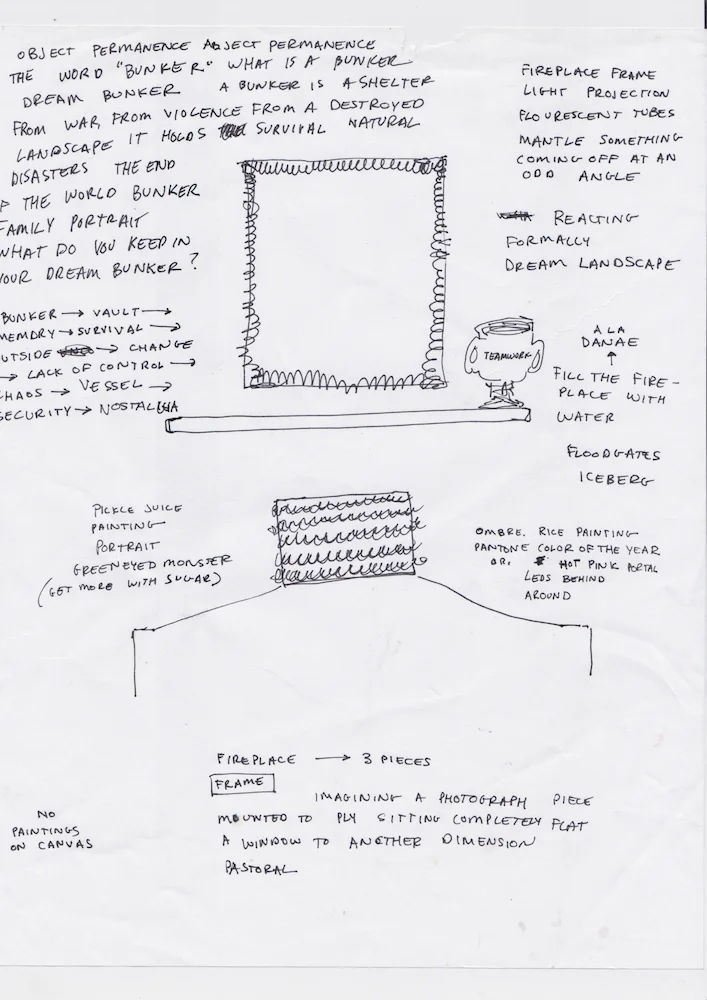 OBJECT PERMANENCE ABJECT PERMANENCE
THE WORD "BUNKER" WHAT IS A BUNKER
DREAM BUNKER A BUNKER IS A SHELTER
FROM WAR, FROM VIOLENCE FROM A DESTROYED
LANDSCAPE IT HOLDS SURVIVAL NATURAL
DISASTERS THE END
F THE WORLD BUNKER
FAMILY PORTRAIT
WHAT DO YOU KEEP IN
YOUR DREAM BUNKER?
BUNKER → VAULT →
MEMORY → SURVIVAL →
OUTSIDE → CHANGE
→ LACK OF CONTROL →
CHAOS → VESSEL →
SECURITY → NOSTALGIA
FIREPLACE FRAME
LIGHT PROJECTION
FLOURESCENT TUBES
MANTLE SOMETHING
COMING OFF AT AN
ODD ANGLE
REACTING
FORMALLY
DREAM LANDSCAPE
TEAMWORK
A LA
DANAE
↑
FILL THE FIRE-
PLACE WITH
WATER
FLOODGATES
ICEBERG
PICKLE JUICE
PAINTING
PORTRAIT
GREENEYED MONSTER
(GET MORE WITH SUGAR)
OMBRE. RICE PAINTING
PANTONE COLOR OF THE YEAR
OR. HOT PINK PORTAL
LEDS BEHIND
AROUND
FIREPLACE → 3 PIECES
FRAME
IMAGINING A PHOTOGRAPH PIECE
MOUNTED TO PLY SITTING COMPLETELY FLAT
A WINDOW TO ANOTHER DIMENSION
PASTORAL
NO
PAINTINGS
ON CANVAS